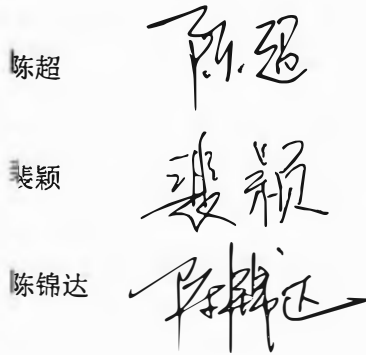 陈超 陈超
裴颖 裴颖
陈锦达 陈锦达